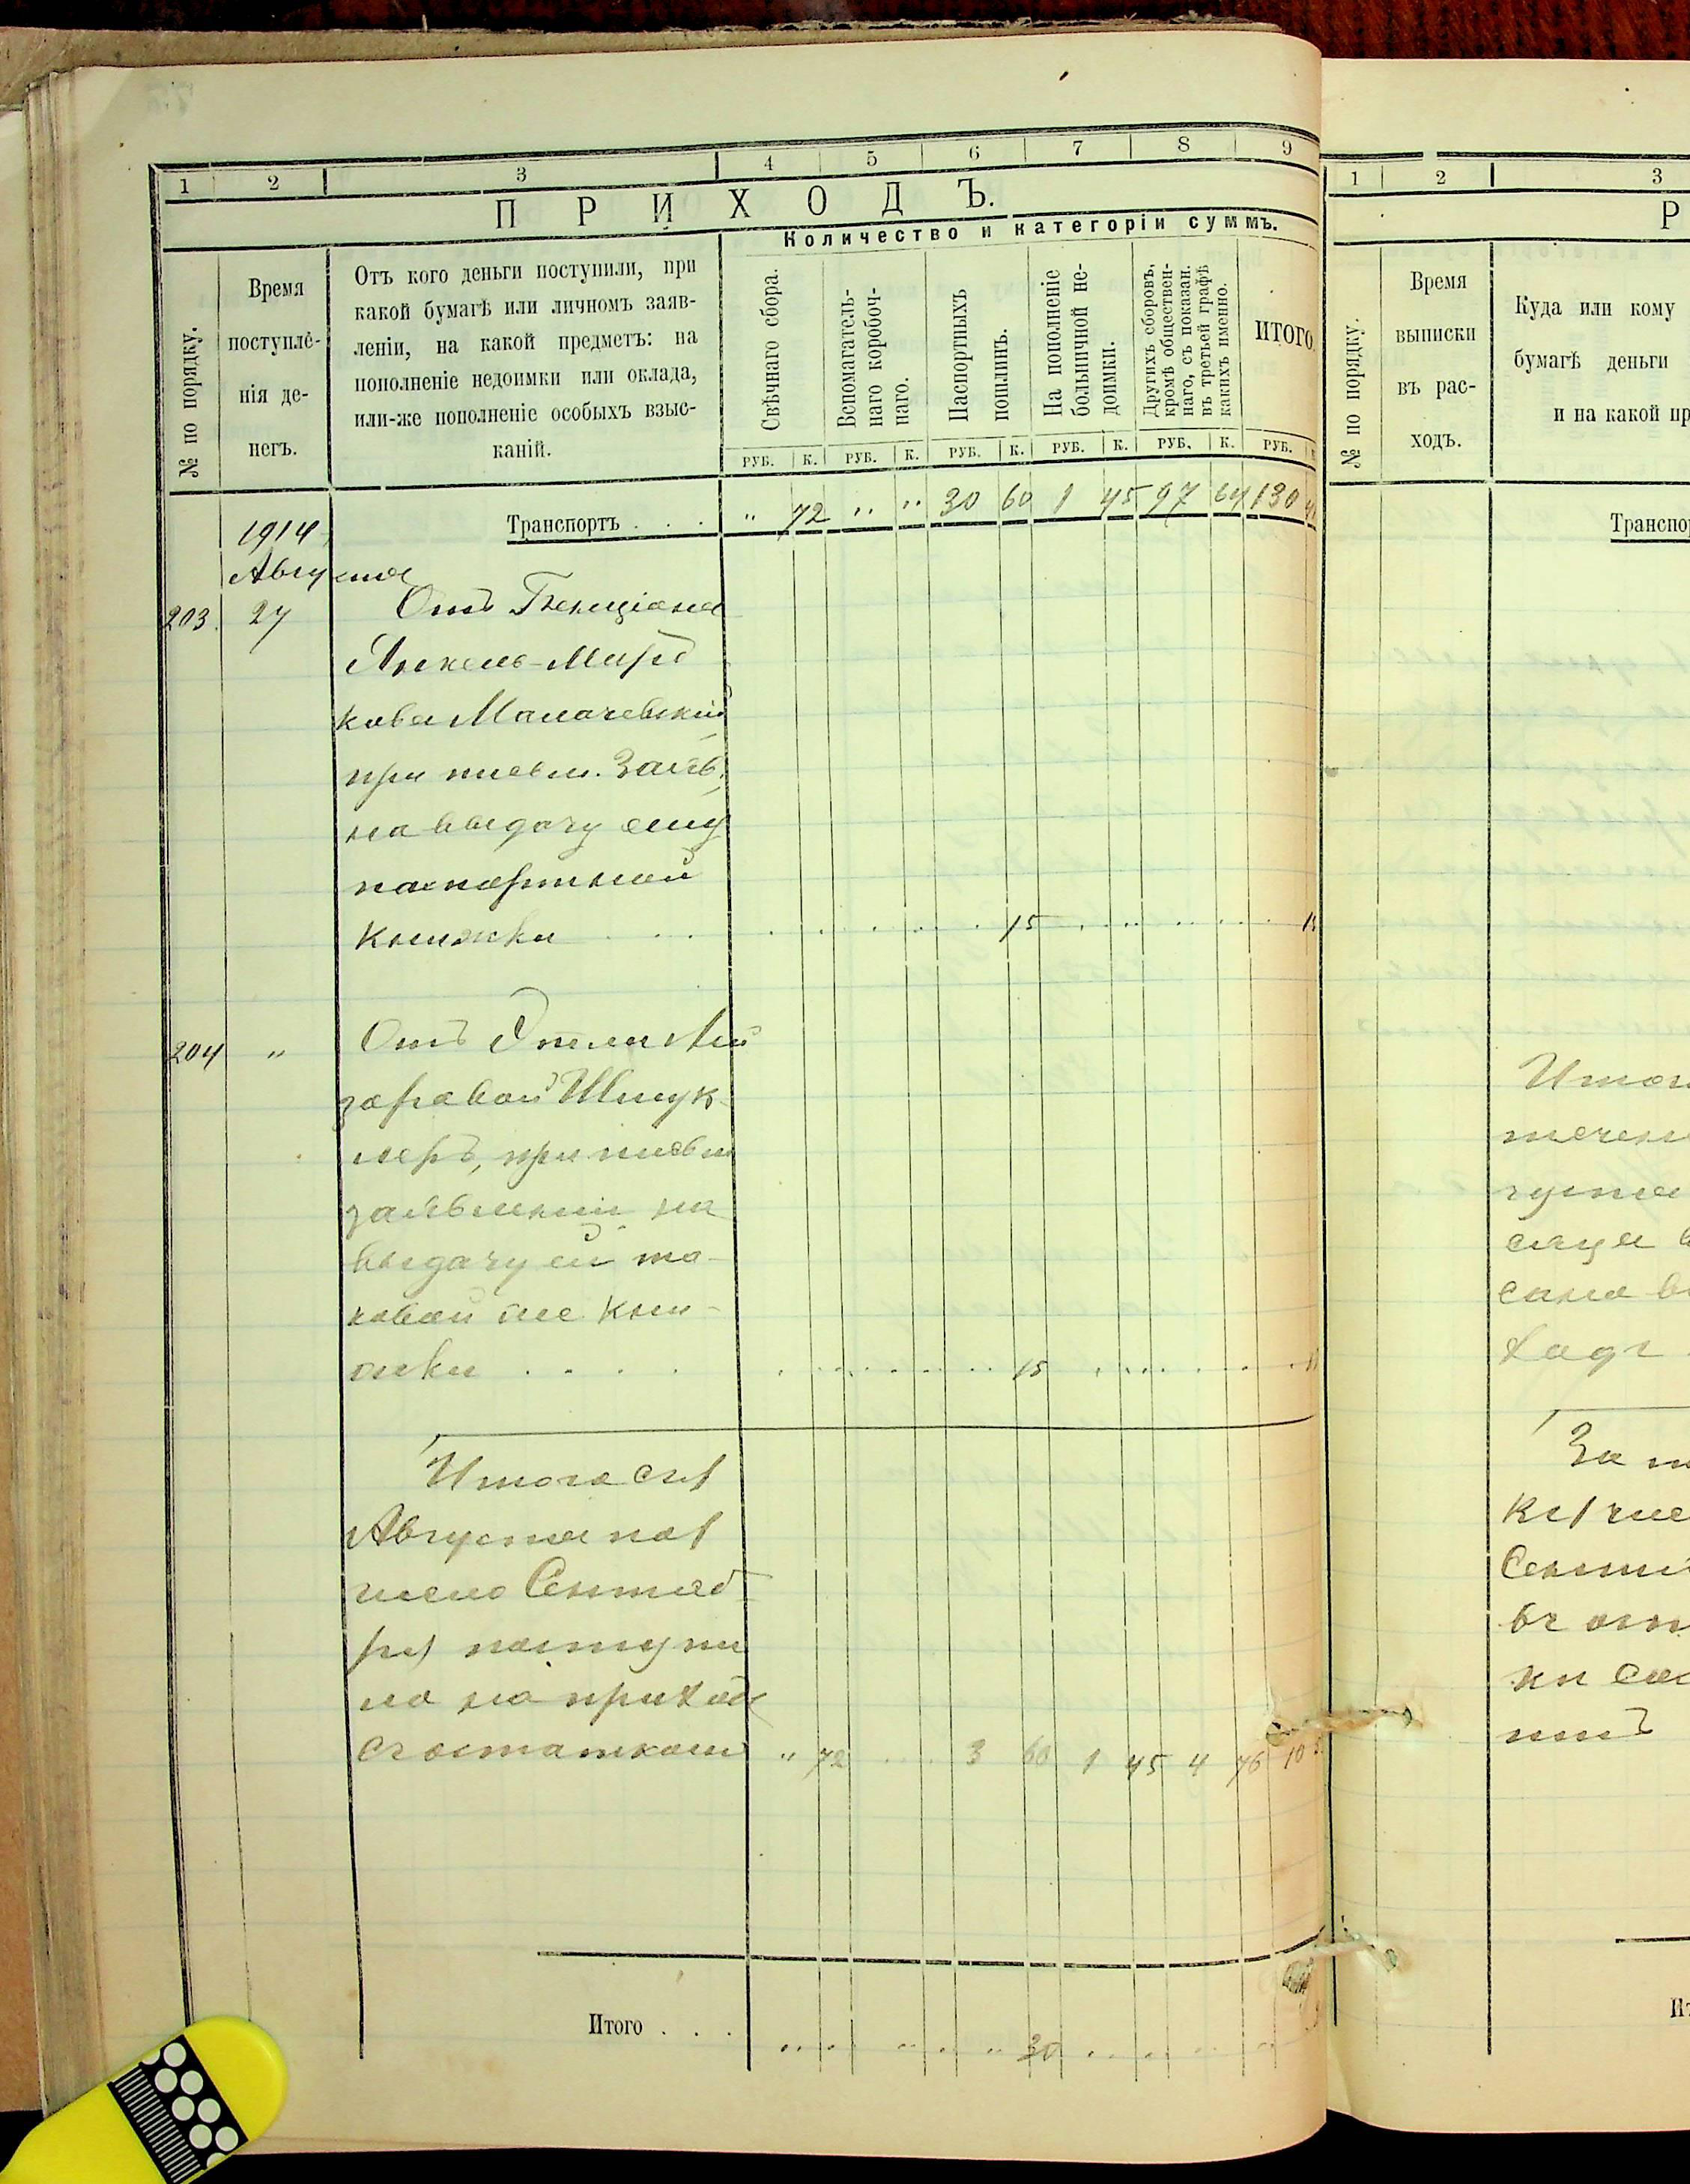 1 2 3 4 5 6 7 8 9
ПРИХОДЪ.
Количество и категоріи суммъ.
№ по порядку.
Время
поступле-
нія де-
негъ.
Отъ кого деньги поступили, при
какой бумагѣ или личномъ заяв-
леніи, на какой предметъ: на
пополненіе недоимки или оклада,
или-же пополненіе особыхъ взыс-
каній.
Свѣчнаго сбора.
Вспомагатель-
наго коробоч-
наго.
Паспортныхъ
пошлинъ.
На пополненіе
больничной не-
доимки.
Другихъ сборовъ,
кромѣ обществен-
наго, съ показан.
въ третьей графѣ
какихъ именно.
ИТОГО.
РУБ. К. РУБ. К. РУБ. К. РУБ. К. РУБ. К. РУБ.
Транспортъ . . . " 72 " " 30 60 1 45 97 64 130
1914
Августа
203. 27 Отъ
Янкель-Мор
кова
при письм. заяв.
на выдачу ему
паспортной
книжки . . . 15
204 " Отъ
заровой Шмук-
леръ, при письм
заявленіи на
выдачу ей та-
ковой же кни-
жки . . . . 15
Итого съ 1
Августа по 1
число Сентяб
ря поступи
ло на приходъ
съ остаткомъ " 72 3 60 1 45 4 76 10
Итого . . . 30
1 2 3
Р
№ по порядку.
Время
выписки
въ рас-
ходъ.
Куда или кому
бумагѣ деньги
и на какой пр
Транспор
Итого
течен
густа
сяца
сано в
ходъ
За
къ 1 чис
Сентя
въ ост
ки сос
титъ
Ит